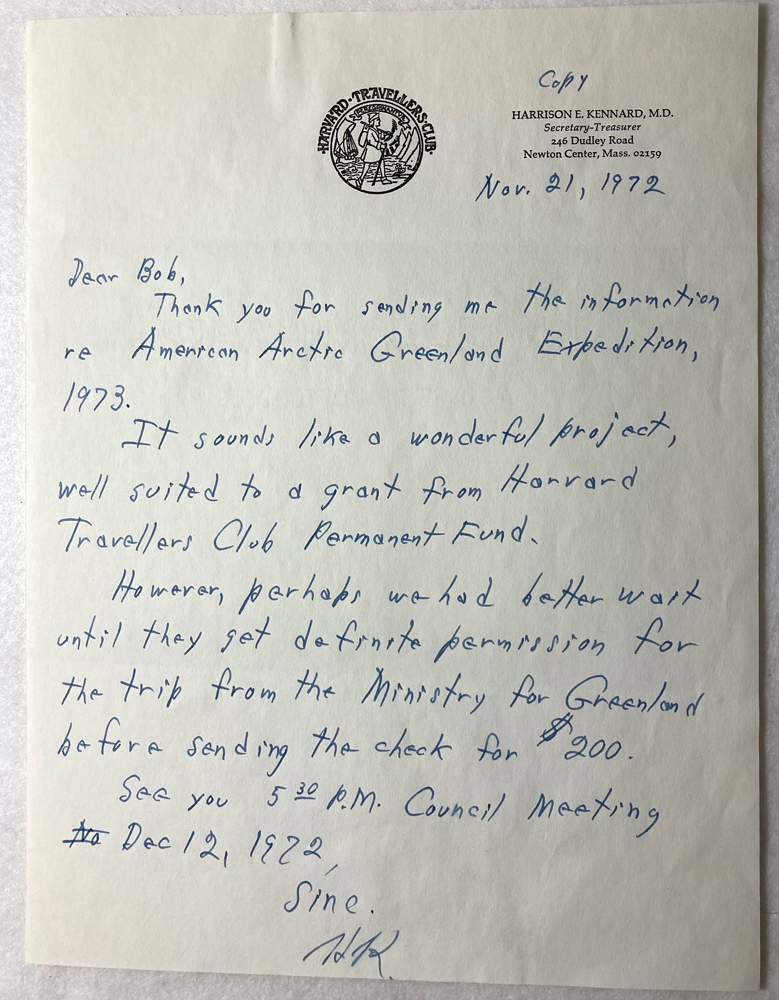 Copy
HARVARD·TRAVELLERS·CLUB·
HARRISON E. KENNARD, M.D.
Secretary-Treasurer
246 Dudley Road
Newton Center, Mass. 02159
Nov. 21, 1972
Dear Bob,
Thank you for sending me the information
re American Arctic Greenland Expedition,
1973.
It sounds like a wonderful project,
well suited to a grant from Harvard
Travellers Club Permanent Fund.
However, perhaps we had better wait
until they get definite permission for
the trip from the Ministry for Greenland
before sending the check for $200.
See you 5 30 P.M. Council Meeting
No Dec 12, 1972,
Sinc.
HK.